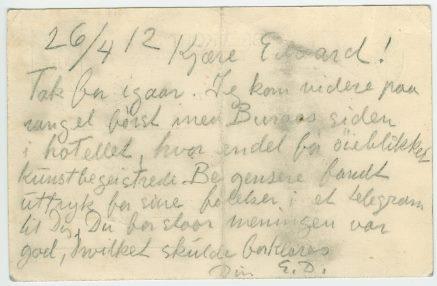 26/4 12 Kjære Edvard!
Tak for igaar. Je kom videre paa
rangel først med Buraas siden
i hotellet, hvor endel for öieblikket
kunstbegeistrede Bergensere fandt
uttryk for sine følelser i et telegram
til Dig. Du forstaar meningen var
god, hvilket skulde forklares
Din E. D.